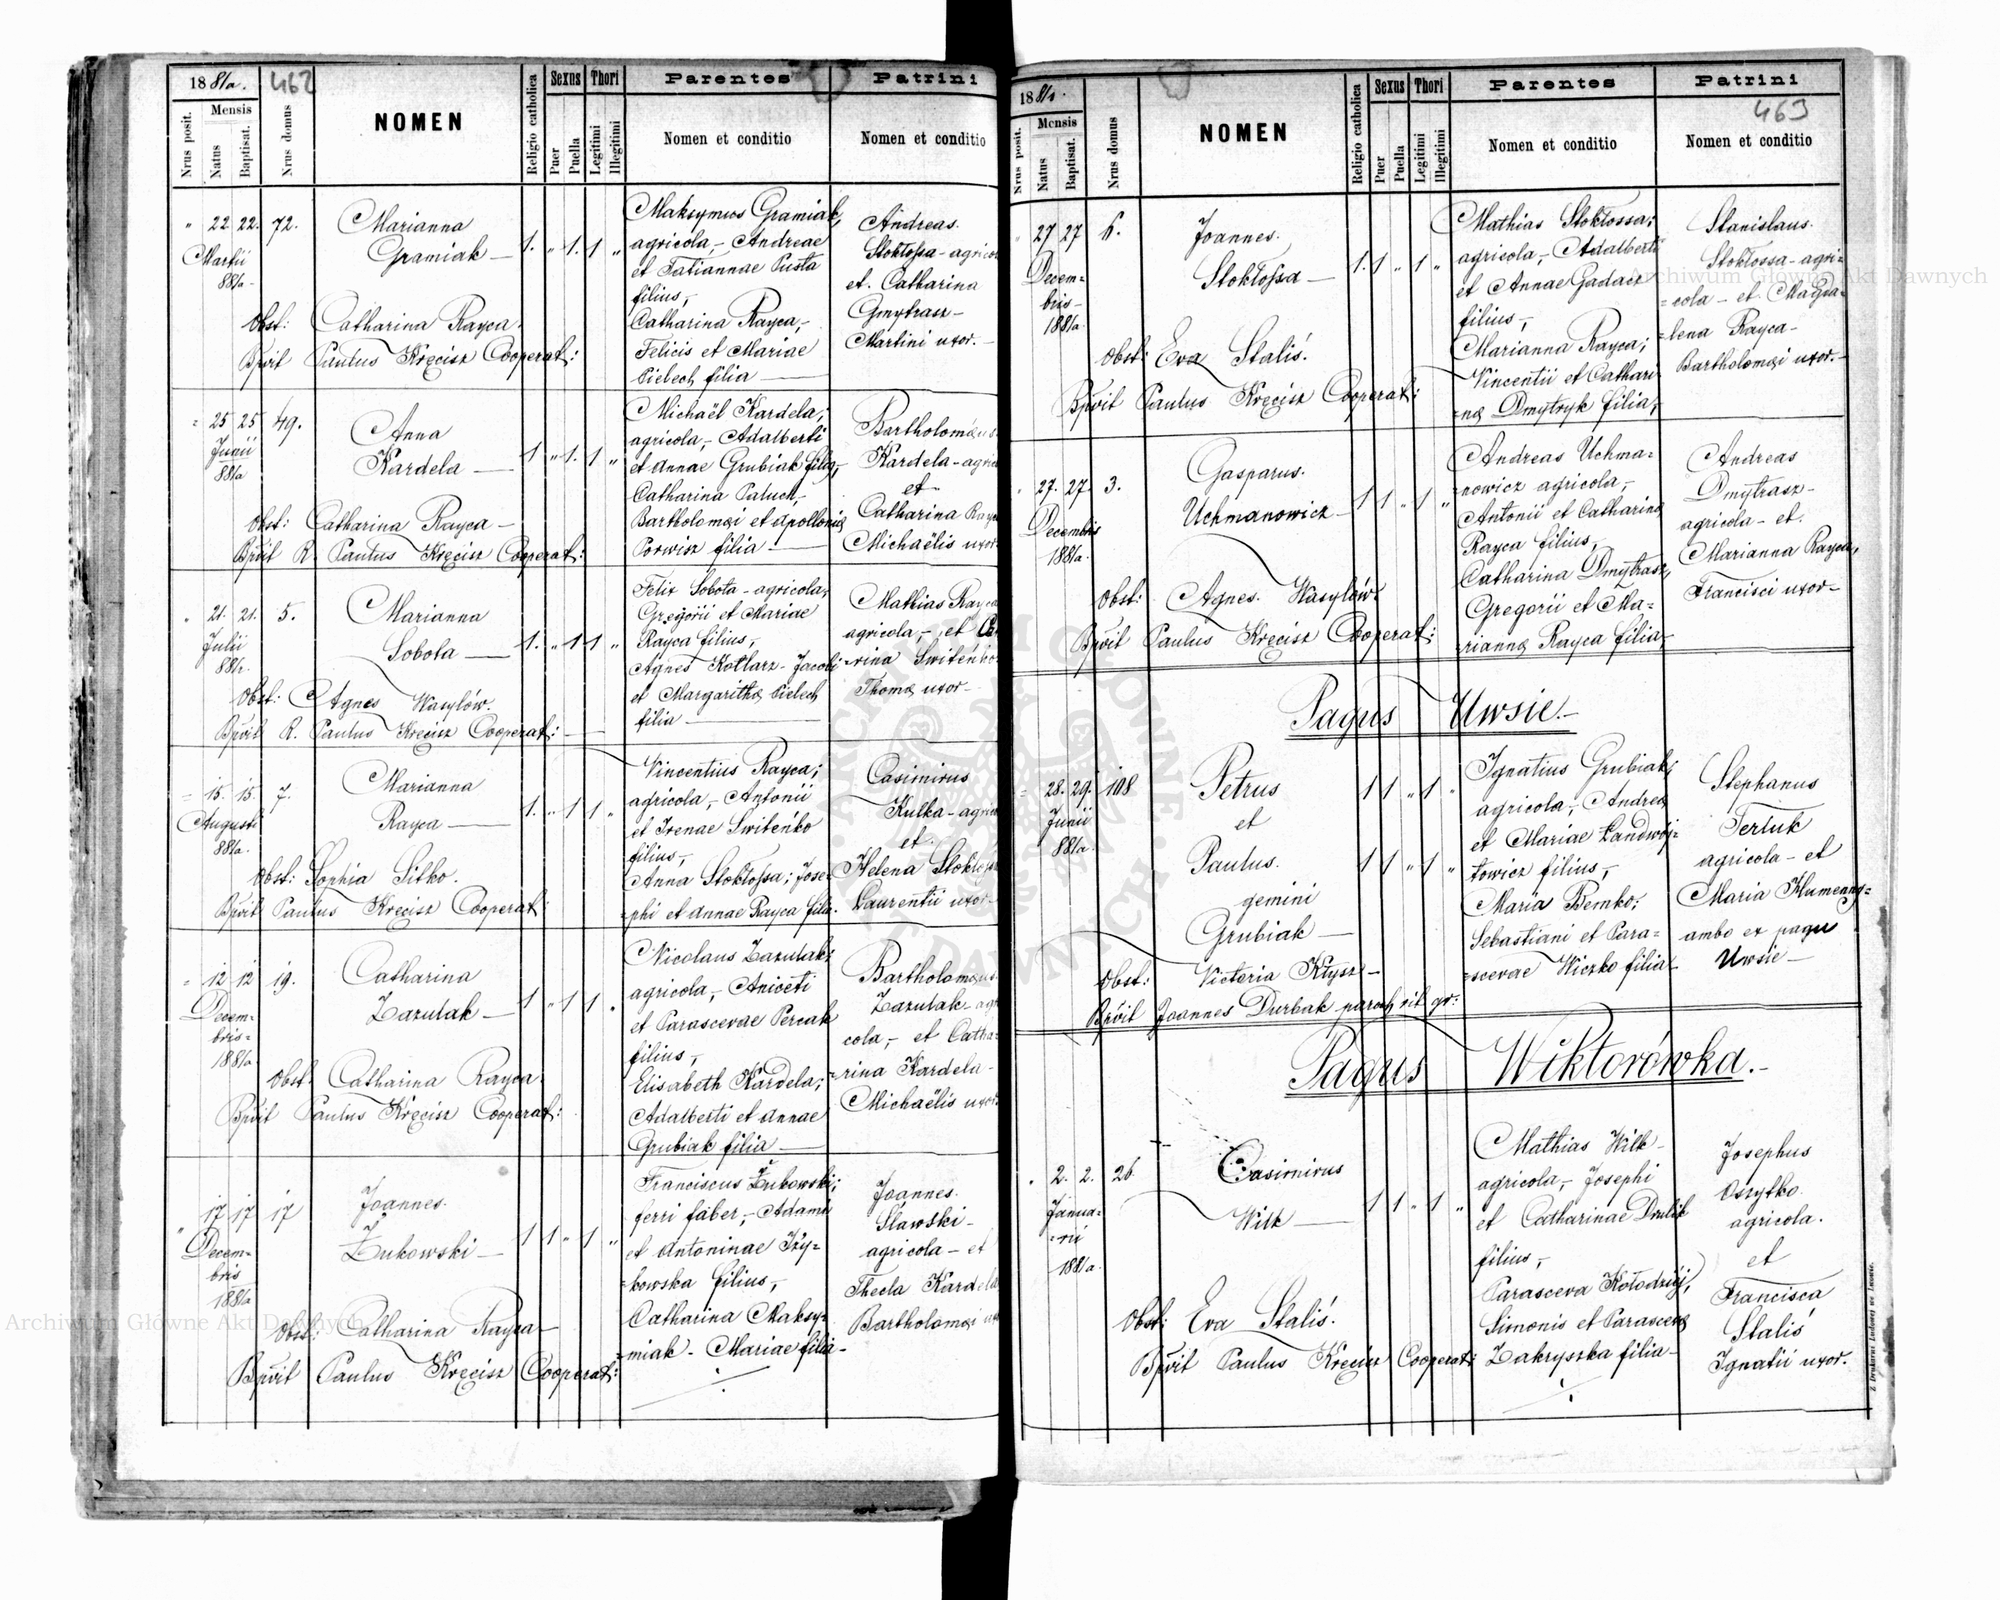 1881/a. 462
Nrus posit. Mensis Natus Baptisat. Nrus domus
NOMEN
Religio catholica
Sexus Puer Puella
Thori Legitimi Illegitimi
Parentes
Nomen et conditio
Patrini
Nomen et conditio
" 22 22. 72.
Martii
881/a
Marianna
Gramiak
1. " 1. 1 "
Obst: Catharina Rayca.
Bpvit Paulus Kręcisz Cooperat:
Maksymus Gramiak,
agricola,- Andreae
et Tatiannae Pusta
filius,-
Catharina Rayca,-
Felicis et Mariae
Pielech filia
Andreas.
Stokłossa - agricol
et. Catharina
Gmytrasz -
Martini uxor.-
= 25 25 49.
Junii
881/a
Anna
Kardela
1 " 1. 1 "
Obst: Catharina Rayca -
Bpvit R. Paulus Kręcisz Cooperat:
Michaël Kardela;
agricola,- Adalberti
et Annae Grubiak filius,-
Catharina Paluch,
Bartholomæi et Apolloniæ
Porwisz filia
Bartholomæus
Kardela - agric
et
Catharina Rayca
Michaëlis uxor-
" 21. 21. 5.
Julii
881/a.
Marianna
Sobota
1. " 1 1 "
Obst: Agnes Wasylów.
Bpvit R. Paulus Kręcisz Cooperat:
Felix Sobota - agricola,
Gregorii et Mariae
Rayca filius,-
Agnes Kotlarz - Jacobi
et Margarithæ Pielech
filia
Mathias Rayca
agricola,- et Ca
-rina Switeńko
Thomæ uxor-
= 15. 15. 7.
Augusti
881/a.
Marianna
Rayca
1. " 1 1 "
Obst: Sophia Sitko.
Bpvit Paulus Kręcisz Cooperat:
Vincentius Rayca;
agricola,- Antonii
et Irenae Switeńko
filius,-
Anna Stokłossa; Jose-
phi et Annae Rayca filia.
Casimirus
Kulka - agric
et.
Helena Stokłos
Laurentii uxor-
= 12 12 19.
Decem-
bris-
1881/a
Catharina
Zazulak
1 " 1 1 "
Obst. Catharina Rayca.
Bpvit Paulus Kręcisz Cooperat:
Nicolaus Zazulak;
agricola,- Aniceti
et Parascevae Percak
filius,-
Elisabeth Kardela;
Adalberti et Annae
Grubiak filia
Bartholomæus
Zazulak - agr
cola,- et Catha-
-rina Kardela -
Michaëlis uxor.
" 17 17 17
Decem-
bris
1881/a
Joannes.
Żukowski
1 1 " 1 "
Obst: Catharina Rayca
Bpvit Paulus Kręcisz Cooperat:
Franciscus Żukowski;
ferri faber,- Adami
et Antoninae Izy-
kowska filius,-
Catharina Maksy-
miak - Mariae filia-
Joannes.
Sławski -
agricola - et
Thecla Kardela
Bartholomæi ux
1881/a. 463
Nrus posit. Mensis Natus Baptisat. Nrus domus
NOMEN
Religio catholica
Sexus Puer Puella
Thori Legitimi Illegitimi
Parentes
Nomen et conditio
Patrini
Nomen et conditio
27 27 6.
Decem-
bris-
1881/a
Joannes.
Stokłossa
1. 1 " 1 "
Obst: Eva Staliś.
Bpvit Paulus Kręcisz Cooperat:
Mathias Stokłossa;
agricola,- Adalberti
et Annae Gadacz
filius,-
Marianna Rayca;
Vincentii et Cathari-
-næ Dmytryk filia,-
Stanislaus.
Stokłossa - agri-
-cola - et Magda-
-lena Rayca-
Bartholomæi uxor.-
" 27. 27. 3.
Decembris
1881/a.
Gasparus.
Uchmanowicz
1 1 " 1 "
Obst: Agnes Wasylów.
Bpvit Paulus Kręcisz Cooperat:
Andreas Uchma-
-nowicz agricola,-
Antonii et Catharinæ
Rayca filius,-
Catharina Dmytrasz,
Gregorii et Ma-
-riannæ Rayca filia,-
Andreas
Dmytrasz -
agricola - et.
Marianna Rayca,
Francisci uxor-
Pagus Uwsie.-
28. 29. 108
Junii
881/a.
Petrus
et
Paulus.
gemini
Grubiak
1 1 " 1 "
1 1 " 1 "
Obst: Victoria Kłysz-
Bpvit Joannes Durbak paroch rit gr:
Ignatius Grubiak,
agricola,- Andreæ
et Mariae Landwoj-
-towicz filius,-
Maria Bemko;
Sebastiani et Para-
-scevae Wiczko filia-
Stephanus
Ferluk
agricola - et
Maria
ambo ex pagu
Uwsie -
Pagus Wiktorówka.-
" 2. 2. 26
Janua-
-rii
1881/a.
Casimirus
Wilk
1 1 " 1 "
Obst: Eva Staliś.
Bpvit Paulus Kręcisz Cooperat:
Mathias Wilk -
agricola,- Josephi
et Catharinae Drulik
filius,-
Parasceva Kołodziej,
Simonis et Parascevæ
Zakryszka filia-
Josephus
Oszytko.
agricola.
et
Francisca
Staliś
Ignatii uxor.
Z Drukarni Ludowej we Lwowie.
Archiwum Główne Akt Dawnych
Archiwum Główne Akt Dawnych
ARCHIWUM GŁÓWNE AKT DAWNYCH